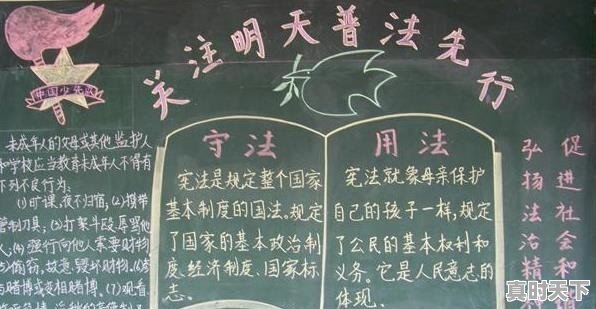 关注明天普法先行
中国少先队
未成年人的父母或其他监护人
和学校应当教育未成年人不得有
下列不良行为:
(1)旷课、夜不归宿,(2)携带
管制刀具;(3)打架斗殴、辱骂他
人;(4)强行向他人索要财物
(5)偷窃、故意毁坏财物、(6)参
与赌博或变相赌博、(7)观看、
守法
宪法是规定整个国家
基本制度的国法。规定
了国家的基本政治制
度、经济制度、国家标
志。
用法
宪法就象母亲保护
自己的孩子一样,规定
了公民的基本权利和
义务。它是人民意志的
体现.
弘扬法治精
促进社会和谐
真时天下